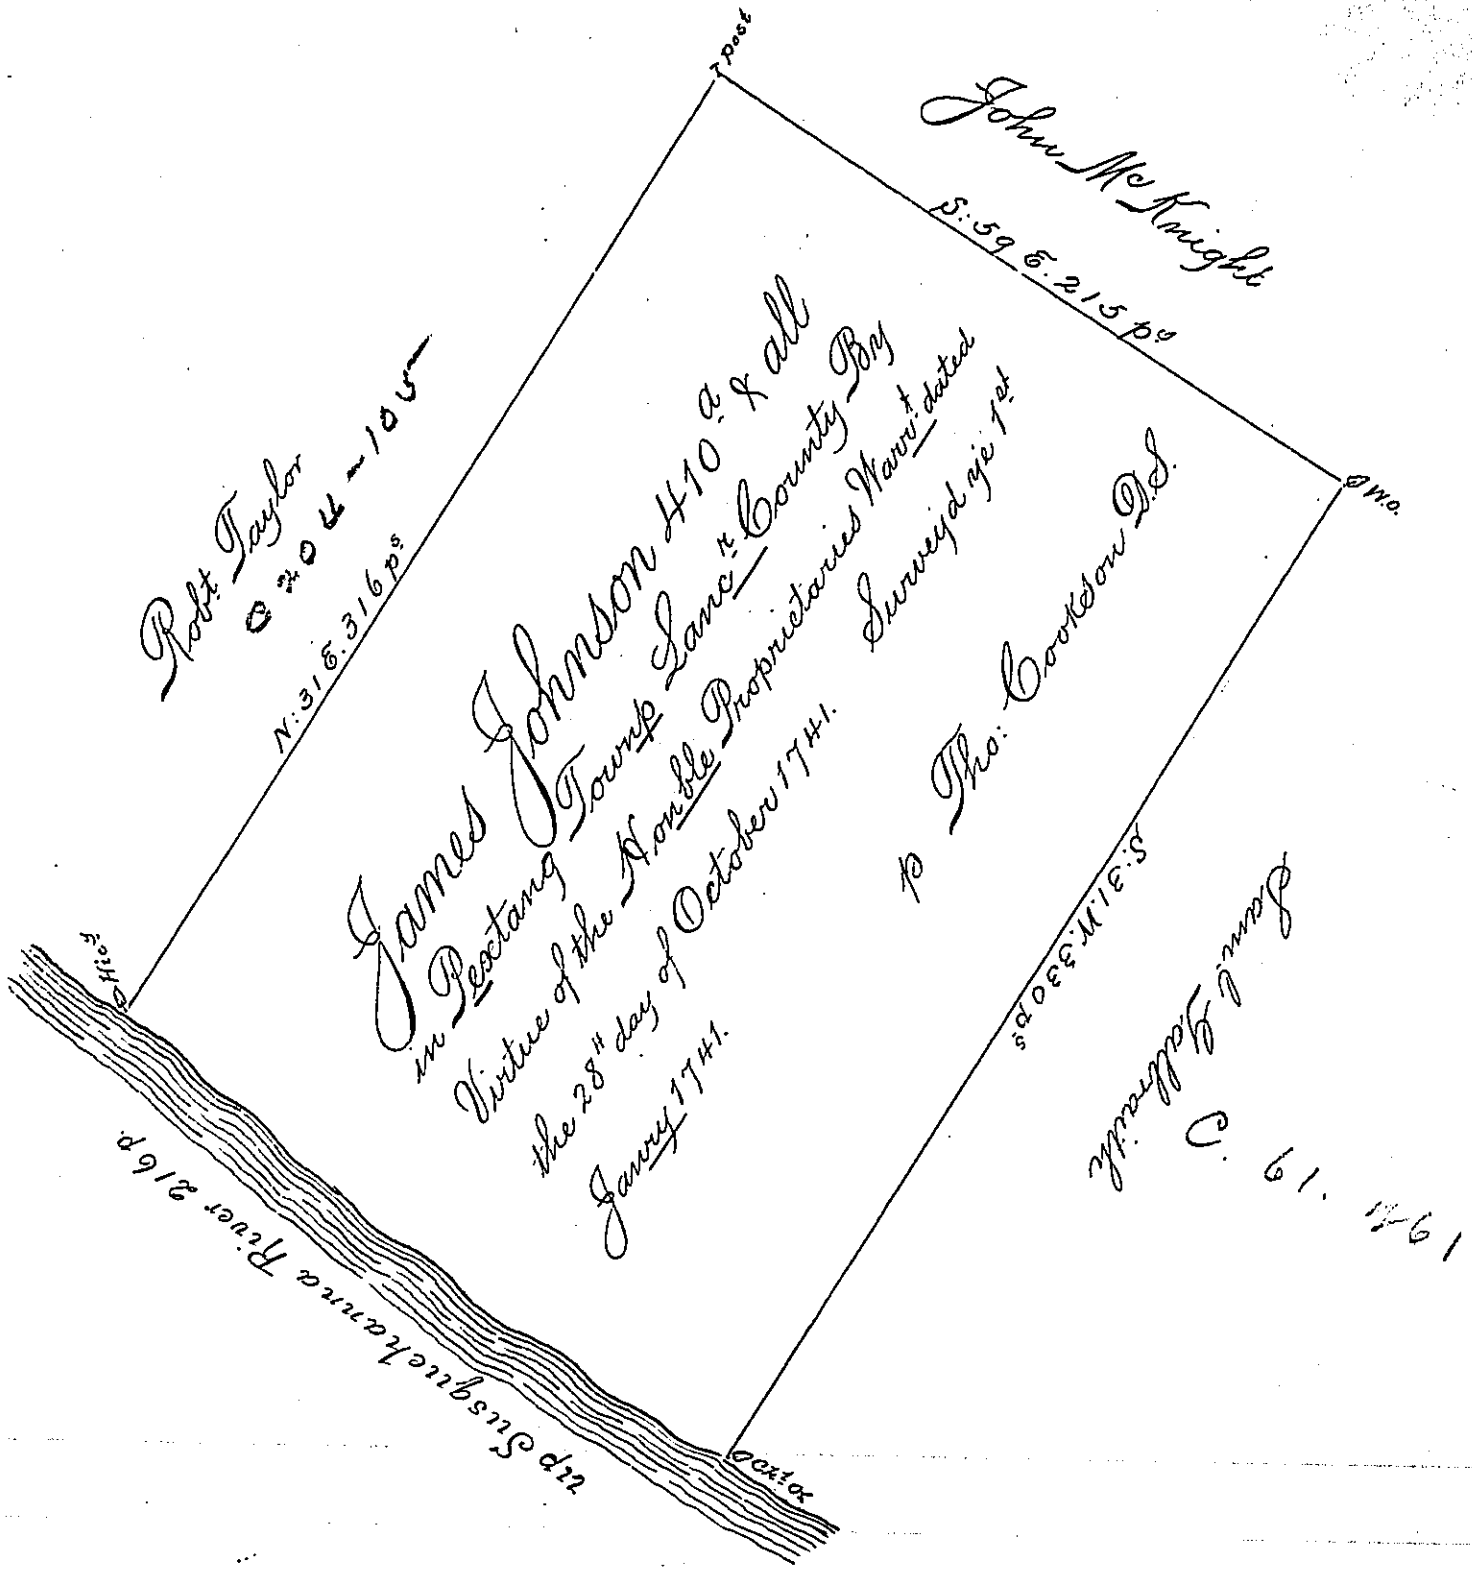 post
John McKnight
S:59 E.215 ps
Robt Taylor
C 204-105
N:31 E.316 ps
James Johnson 410 a & all
in Pextang Townp Lancr County By
Virtue of the Honble Proprietaries Warrt dated
the 28" day of October 1741. Survey'd ye 1st
Janry 1741.
p Tho: Cookson D.S.
W.O.
S:31.W.330 ps
Saml Galbraith
C.
Hicy
up Susquehanna River 216 p.